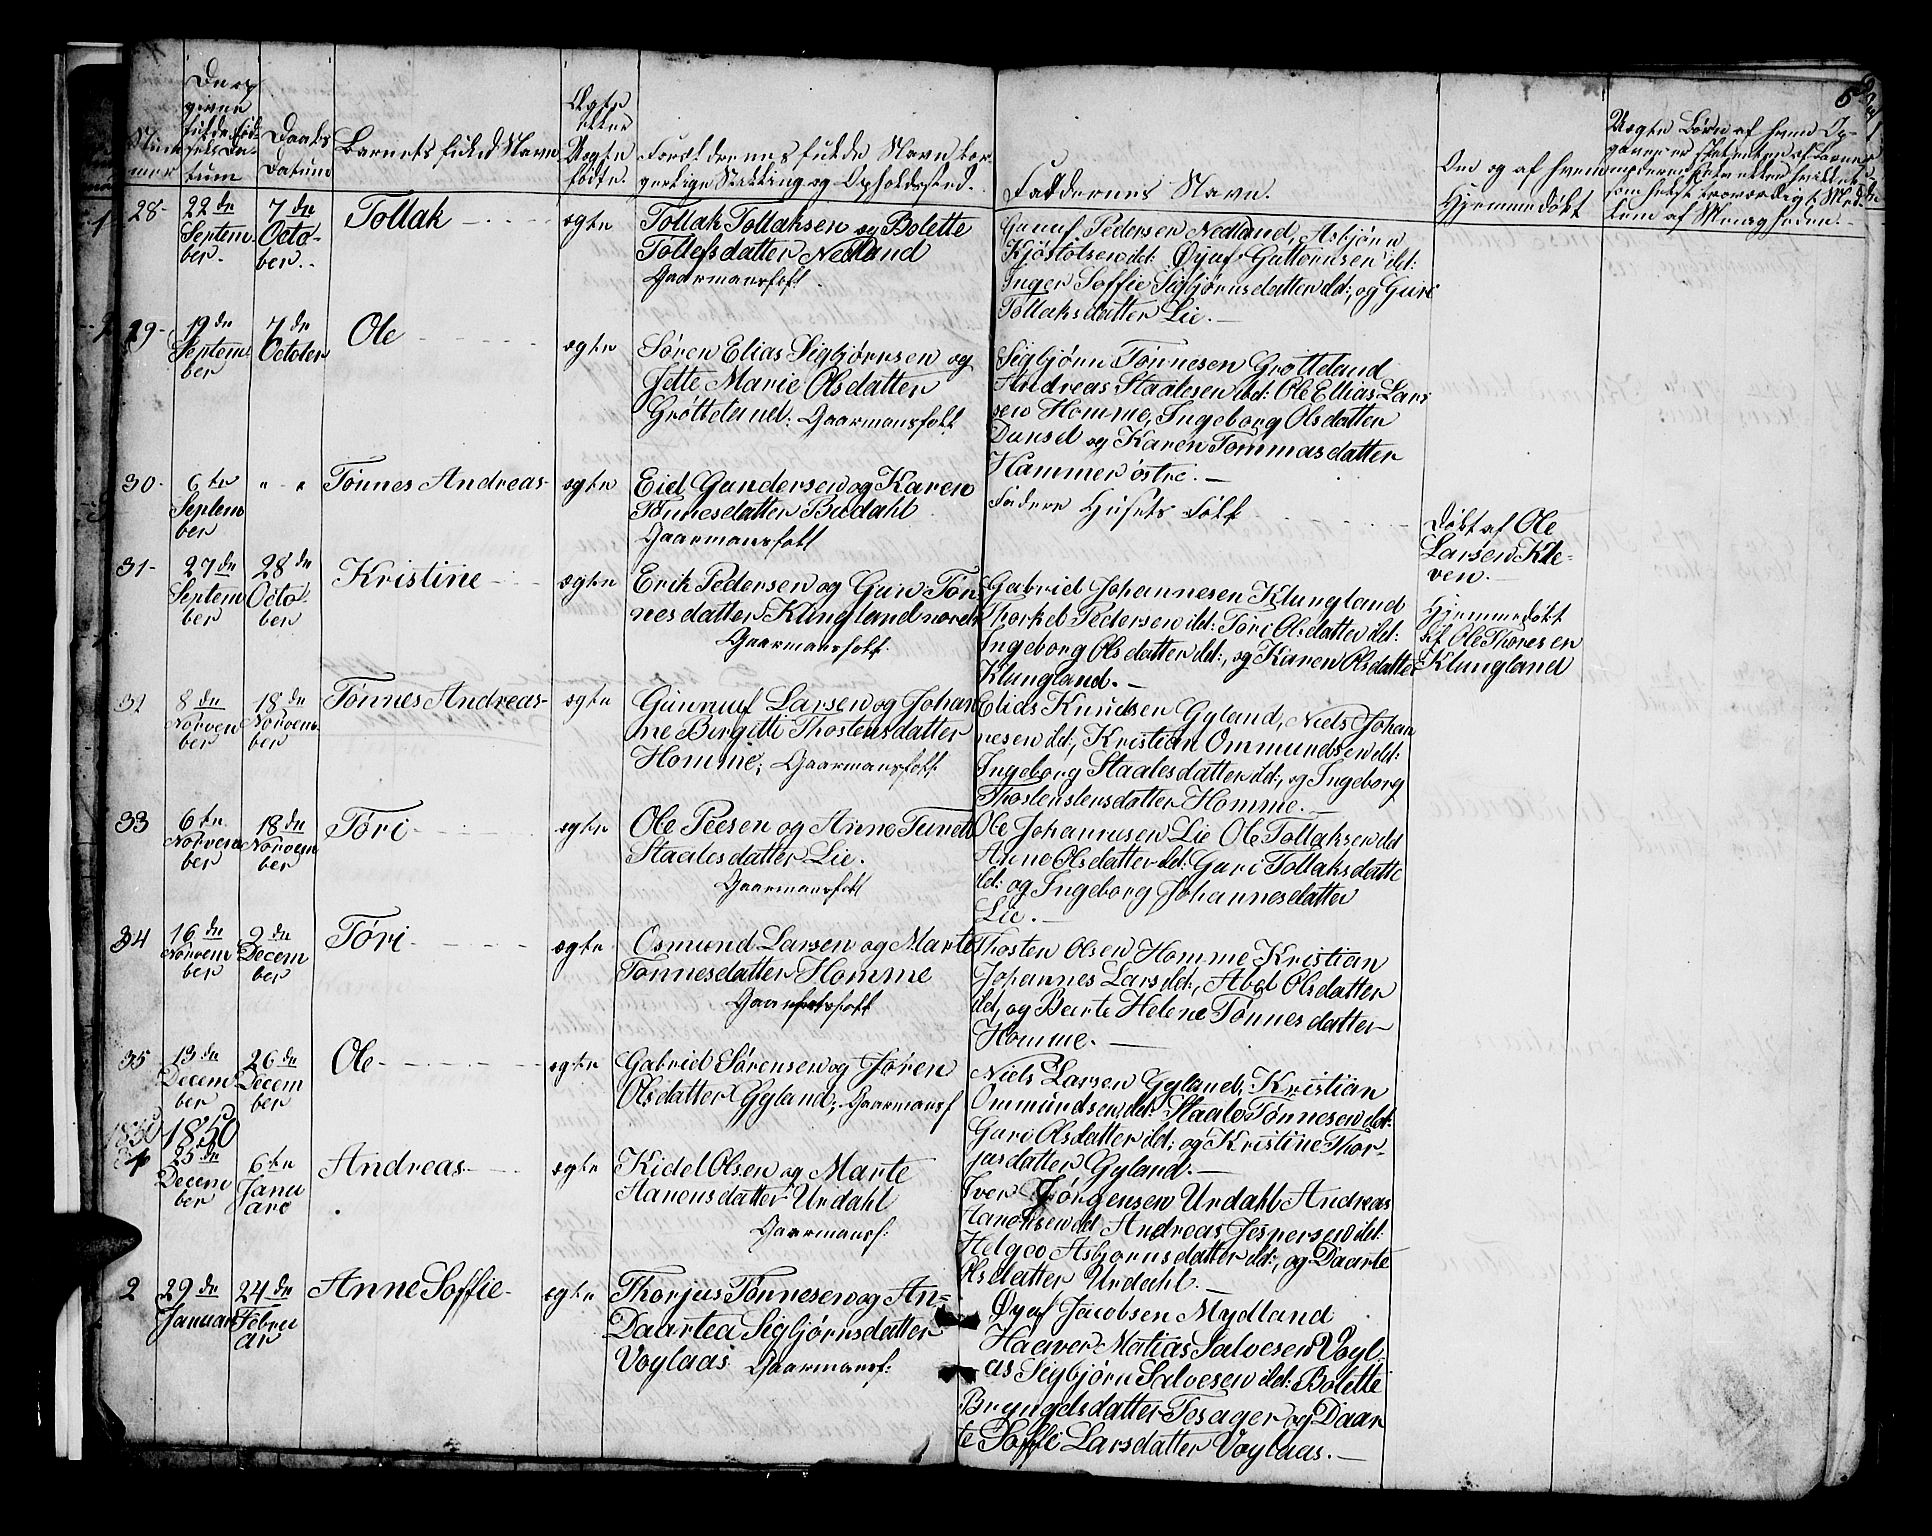 Den op
givne
fulde fød-
sels Da-
tum
Daabs
Datum
Barnets fulde Navn
Ægte
eller
Uegte
fødte.
Forældrenes fulde Navn bor-
gerlige Stilling og Opholdssted.
Faddernes Navn.
Om og af hvem
Hjemmedøbt
5
28-
22de
Septem
ber.
7de
Octo-
ber.
Tollak
ægte
Tollak Tollaksen og Bolette
Tollefsdatter Nedland
Gaarmansfolk
Gunuf Pedersen Nedland, Asbjørn
Kjøstolsen ild: Øyuf Guttormsen ild:
Inger Soffie Sigbjørnsdatter ild:, og Guri
Tollaksdatter Lie.
29-
19de
Septem
ber
7de
October
Ole
ægte
Søren Elias Sigbjørnsen og
Jette Marie Olsdatter
Grøtteland: Gaarmansfolk
Sigbjørn Tønnesen Grøtteland
Andreas Staalesen ild: Ole Ellias Lar
sen Homme, Ingeborg Olsdatter
Dunsed og Karen Tommasdatter
Hammer østre.
30-
6te
Septem
ber
" "
Tønnes Andreas
ægte
Eid Gundersen og Karen
Tønnesdatter Budahl
Gaarmansfolk
Fadere Husets Folk
Døbt af Ole
Larsen Kle-
ven.
31-
27de
Septem
ber
28de
Octo
ber
Kristine
ægte
Erik Pedersen og Guri Tøn
nesdatter Klungland norde
Gaarmansfolk
Gabriel Johannesen Klungland
Thorkel Pedersen ild: Tøri Olsdatter ild:
Ingeborg Olsdatter ild:, og Karen Olsdatter
Klungland.
Hjemmedøbt
af Ole Thoresen
Klungland
32
8de
Norvem
ber
18de
Norvem
ber
Tønnes Andreas
ægte
Gunnuf Larsen og Johan
ne Birgitti Thostensdatter
Homme; Gaarmansfolk
Elias Knudsen Gyland, Niels Johan
nesen ild:, Kristian Ommundsen ild:
Ingeborg Staalesdatter ild:, og Ingeborg
Thostenstensdatter Homme.
33
6te
Norvem
ber
18de
Norvem
ber
Tøri
ægte
Ole Peesen og Anne Tunetta
Staalesdatter Lie.
Gaarmansfolk
Ole Johannesen Lie Ole Tollaksen ild
Anne Olsdatter ild: Guri Tollaksdatte
ild: og Ingeborg Johannesdatter
Lie.
34
16de
Norvem
ber
2de
Decem
ber
Tøri
ægte
Osmund Larsen og Marte
Tønnesdatter Homme
Thosten Olsen Homme Kristian
Johannes Lars ild:, Abel Olsdatter
ild, og Beerte Helene Tønnesdatter
Homme.
35
13de
Decem
ber
26de
Decem
ber
Ole
ægte
Gabriel Sørensen og Jøren
Olsdatter Gyland; Gaarmansf
Niels Larsen Gyland, Kristian
Ommundsen ild: Staale Tønnesen ild:
Guri Olsdatter ild: og Kristine Thor-
jusdatter Gyland.
1850 1850
1
25de
Decem
ber
6te
Janu
are
Andreas
ægte
Kidel Olsen og Marte
Aanensdatter Urdahl
Gaarmansf:
Iver Jørgensen Urdahl Andreas
Aanensen ild Andreas Jespersen ild:
Helgeo Asbjørnsdatter ild:, og Daarte
Olsdatter Urdahl.
2
29de
Januar
24de
Febru
ar
Anne Soffie
ægte
Thorjus Tønnesen og An-
Daartea Sigbjørnsdatter
Voylaas Gaarmansf:
Øyuf Jacobsen Mydland
Haaver Matias Salvesen Voyl-
as Sigbjørn Salvesen ild: Bolette
Bryngelsdatter Fesager og Daar
te Soffi Larsdatter Voylaas.